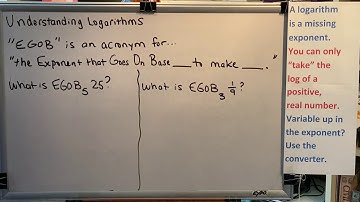 Understanding Logarithms
"EGOB" is an acronym for...
"the Exponent that Goes On Base ___ to make ___."
What is EGOB₅ 25?
What is EGOB₃ 1/9?
A logarithm
is a missing
exponent.
You can only
"take" the
log of a
positive,
real number.
Variable up in
the exponent?
Use the
converter.